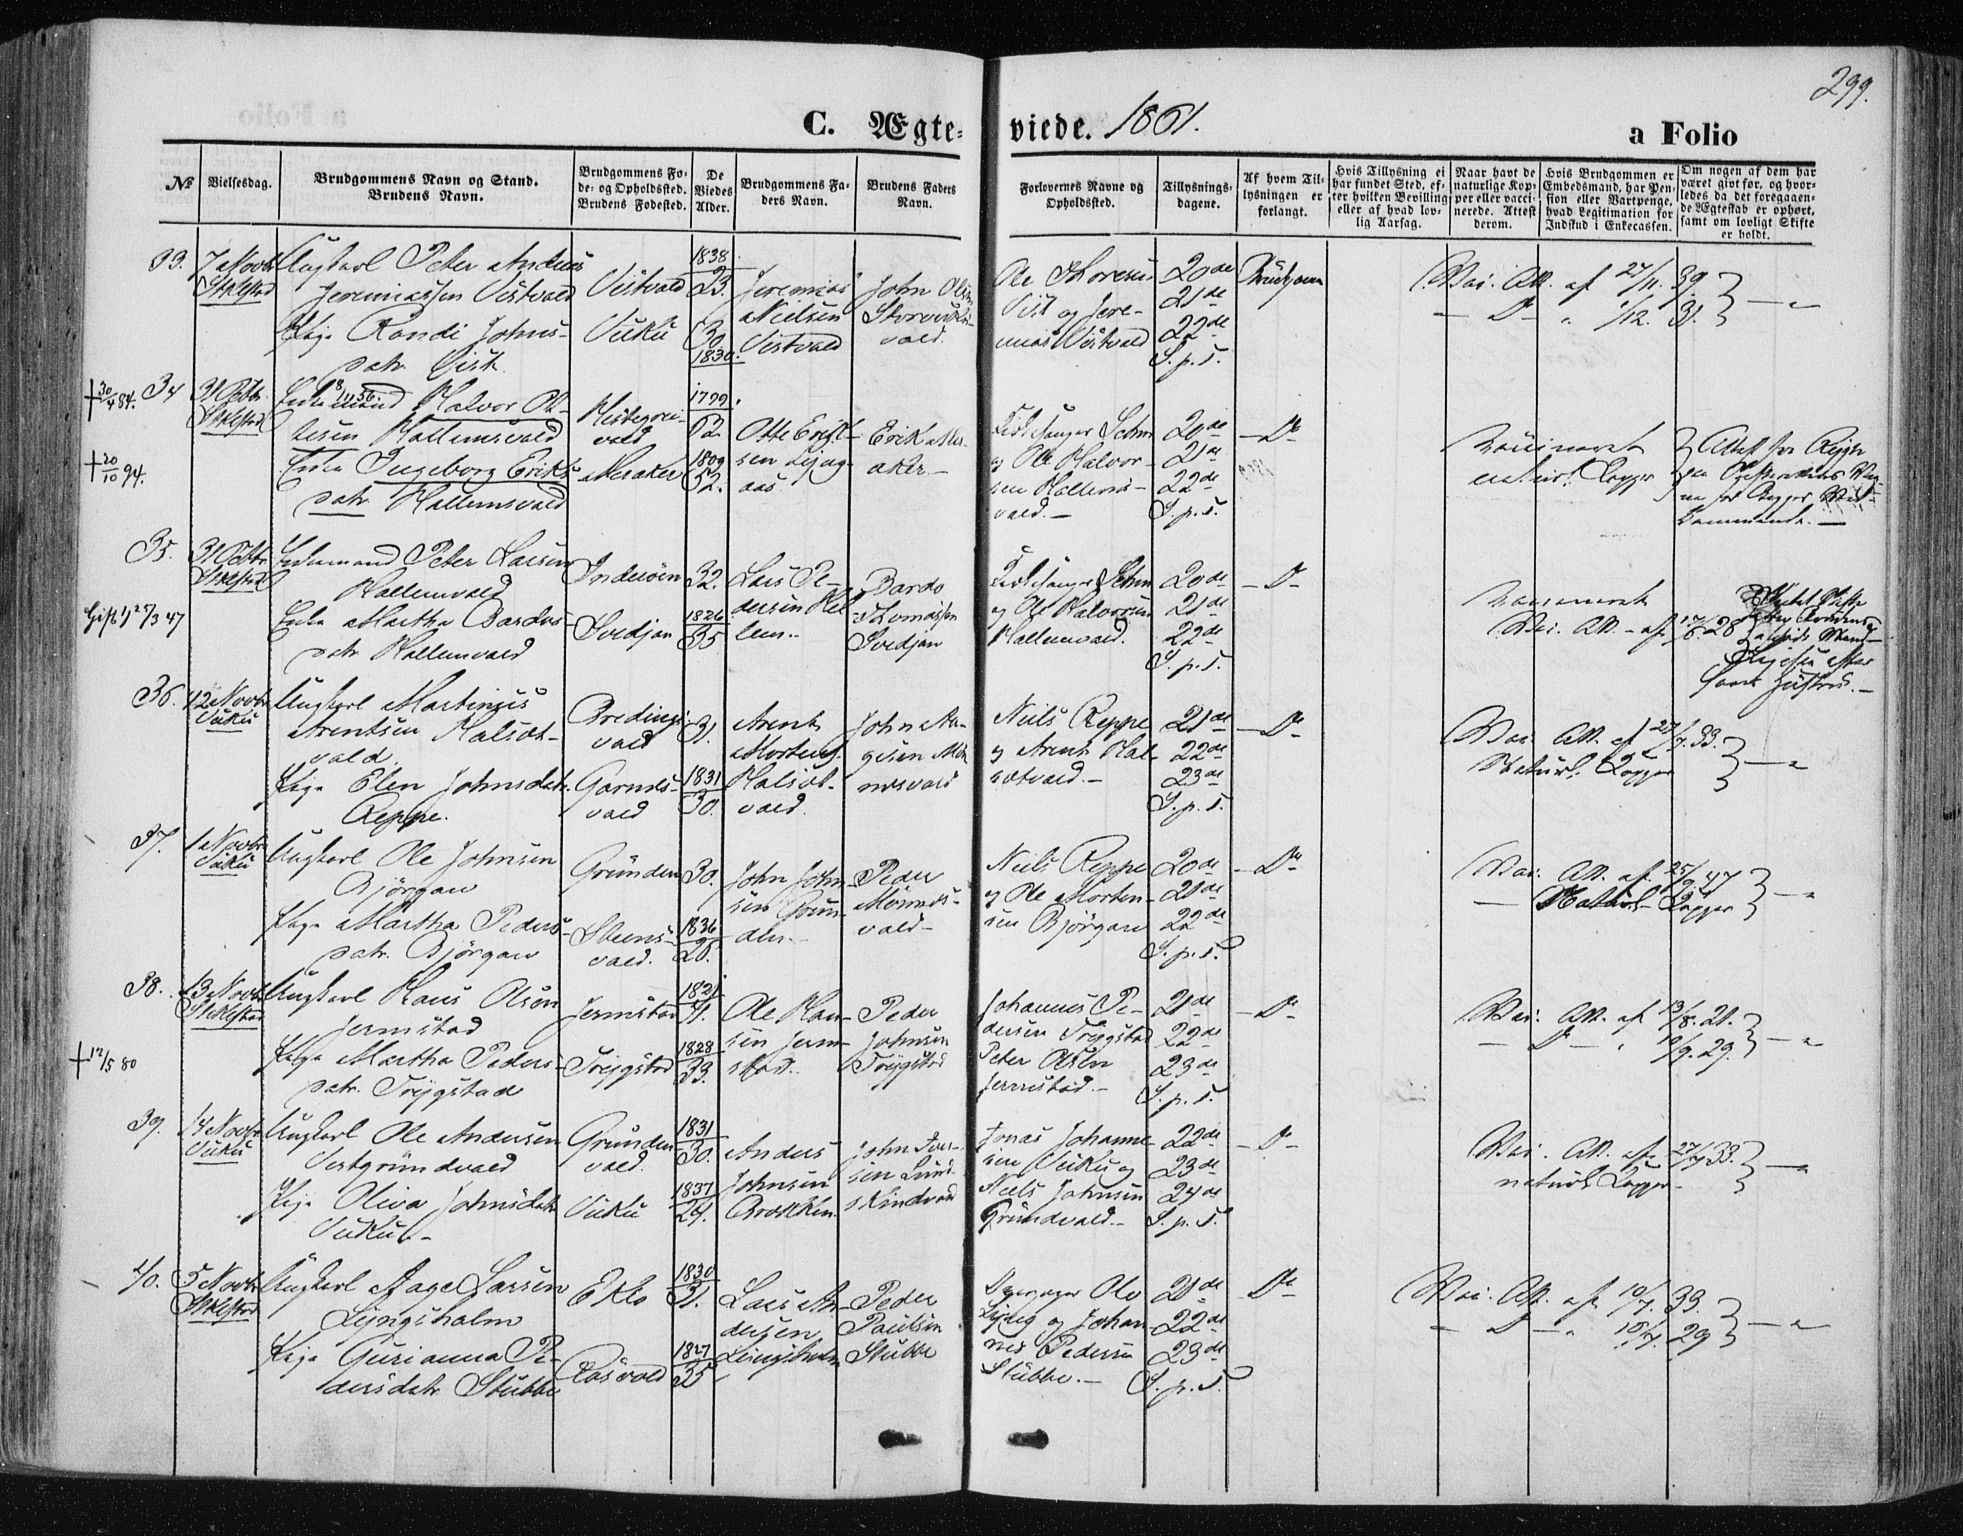 299.
C. Ægteviede. 1861.
a Folio
№
Vielsesdag.
Brudgommens Navn og Stand.
Brudens Navn.
Brudgommens Fø-
de- og Opholdssted.
Brudens Fødested.
De
Viedes
Alder.
Brudgommens Fa-
ders Navn.
Brudens Faders
Navn.
Forlovernes Navne og
Opholdssted.
Tillysnings-
dagene.
Af hvem Til-
lysningen er
forlangt.
Hvis Tillysning ei
har fundet Sted, ef-
ter hvilken Bevilling
eller af hvad lov-
lig Aarsag.
Naar havt de
naturlige Kop-
per eller vacci-
nerede. Attest
derom.
Hvis Brudgommen er
Embedsmand, har Pen-
sion eller Vartpenge,
hvad Legitimation for
Indskud i Enkecassen.
Om nogen af dem har
været gift før, og hvor-
ledes da det foregaaen-
de Ægteskab er ophørt,
samt om lovligt Skifte
er holdt.
33.
7 Novbr
Stiklestad
Ungkarl Peter Andreas
Jeremiassen Vestvald
Pige Randi Johns-
datr. Vist
Vestvald
Vuku
1838
23.
30
1830.
Jeremias
Nielsen
Vestvald
John Olsen
vald.
Ole Thoresen
Vist og Jere-
mias Vestvald
20de
21de
22de
S. p. T.
Vac. Att. af 27/11. 39.
— D — " 1/12. 31.
34
31 Octbr.
Stiklestad
†30/4 84.
†20/10 94.
Enkemand Halvor Ot-
tesen Hallemsvald
Enke Ingeborg Eriks-
datr. Hallemsvald
vald
Meraker
1799.
62.
1809
52.
Otte Erik-
sen Ljug-
aas
Erik Mer-
aker.
Kirkesanger Schm
og Ole Halvor-
sen Hallems-
vald.—
20de
21de
22de
S. p. T.
—Do
Vaccineret
naturl. Kopper
35.
31 Octbr.
Stiklestad
Gift 1) 25/3 47
Enkemand Peter Larsen
Hallemvald
Enke Martha Bardos-
datr. Hallemvald
Inderøen
Svedjan
32.
1826
35
Lars Pe-
dersen Hal-
lem.
Bardo
Thomassen
Svedjan
Kirkesanger Schm
og Ole Halvorsen
Hallemvald.
20de
21de
22de
S. p. T.
—D—
Vaccineret
Vac. Att. — af 17/6 28
36.
12 Novbr
Vuku
Ungkarl Martinus
Arentsen Halset-
vald.
Pige Elen Johnsdatr.
Reppe.
Bredings-
vald
Garnes-
vald
31.
1831
30.
Arent
Mortens.
Halset-
vald.
John Aa-
gesen Møn-
nesvald
Niels Reppe
og Arent Hal-
setvald.—
21de
22de
23de
S. p. T.
—Do—
Vac. Att. af 27/7. 33.
Naturl. Kopper
37.
1 Novbr
Vuku
Ungkarl Ole Johnsen
Bjørgan
Pige Martha Peders-
datr. Bjørgan
Grunden
Steens-
vald.
30.
1836
25.
John John-
sen Grun-
den.
Peder
Mønnes-
vald—
Niels Reppe
og Ole Morten-
sen Bjørgan
20de
21de
22de
S. p. T.
—Do
Vac. Att. af 25/9. 47
— Naturl. Kopper
38.
13 Novbr
Stiklestad
†12/5 80
Ungkarl Hans Olsen
Jermstad
Pige Martha Peders-
datr. Trygstad
Jermstad
Trygstad
1828
33.
Ole Han-
sen Jerm-
stad.
Peder
Johnsen
Trygstad
Johannes Pe-
dersen Trygstad
Peter Olsen
Jermstad.—
21de
22de
23de
S. p. T.
—Do—
Vac. Att. af 13/8. 21.
— D — . 10/9. 29.
39.
14 Novbr
Vuku
Ungkarl Ole Andersen
Vestgrundvald
Pige Oliva Johnsdatr
Vuku.
Grunden
vald.
Vuku
1831
30.
1837
24.
Anders
Johnsen
Brækken.
John Iver-
sen Lund-
skindvald
Jonas Johanne-
sen Vuku og
Niels Johnsen
Grundvald.—
22de
23de
24de
S. p. T.
—D—
Vac. Att. af 27/7 33.
naturl. Kopper
40.
5 Novbr
Stiklestad
Ungkarl Aage Larsen
Lyngsholm
Pige Gurianna Pe-
dersdatr Stubbe
Eklo
Rosvold
1830
31.
1827
35
Lars An-
dersen
Lyngsholm
Peder
Paulsen
Stubbe
Ole
Lydig og Johan-
nes Pedersen
Stubbe.—
21de
22de
23de
S. p. T.
Do
Vac. Att. af. 10/7. 33.
— D — " 10/7. 29